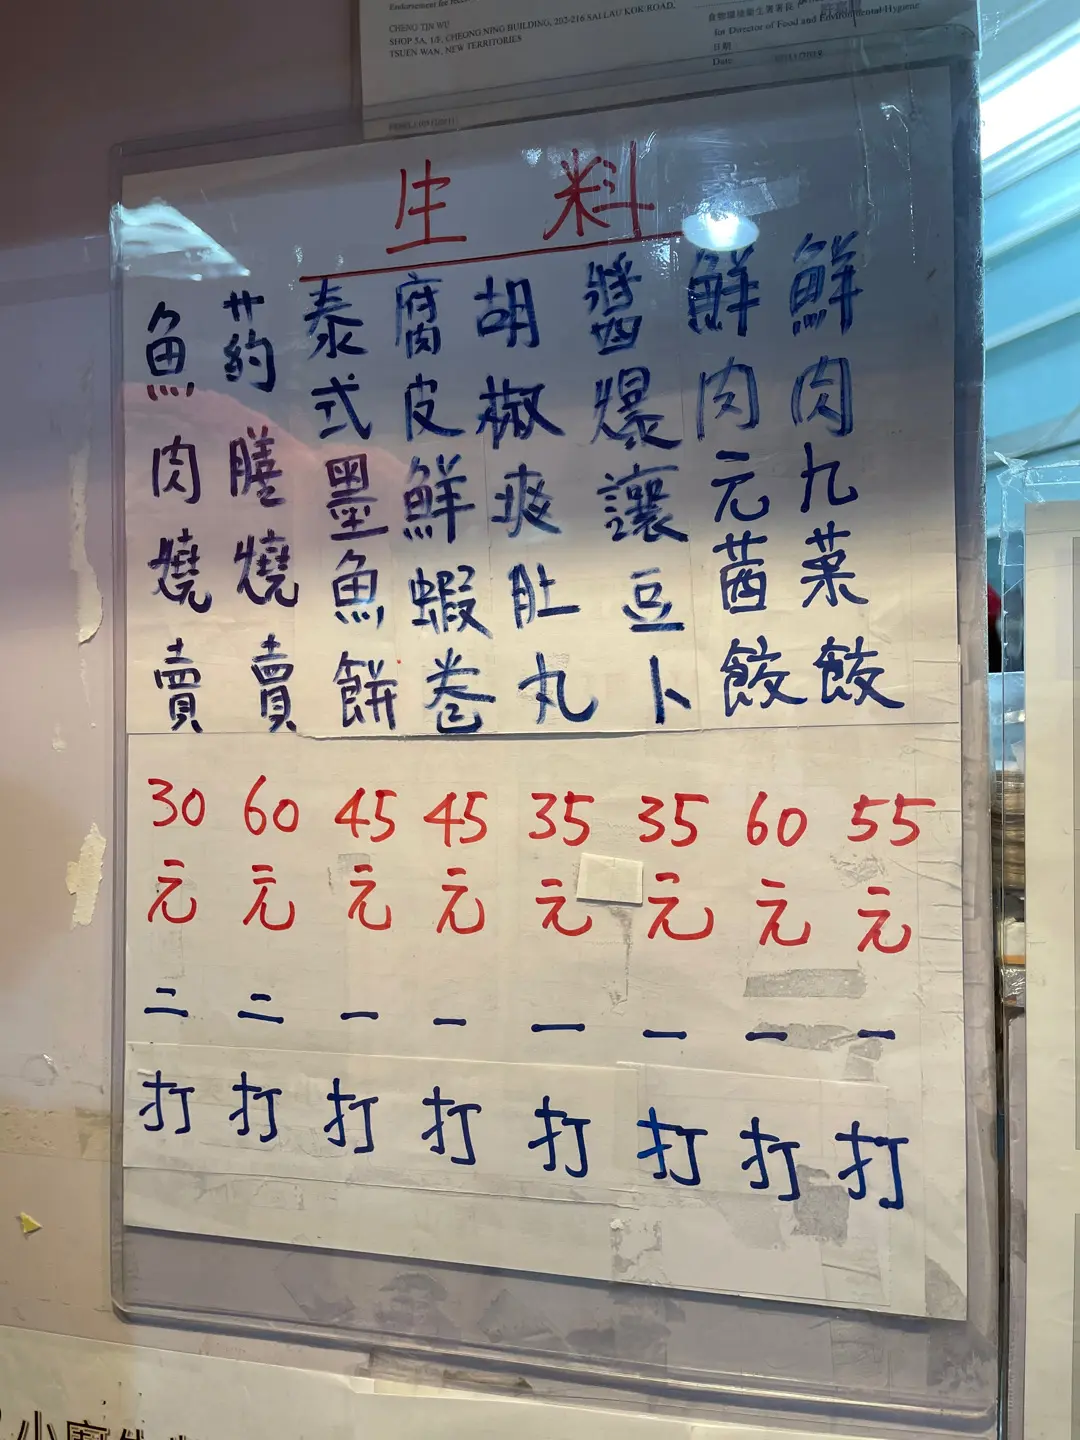 Endorsement for
CHENG TIN WU
SHOP 5A, 1/F, CHEONG NING BUILDING, 202-216 SAI LAU KOK ROAD,
TSUEN WAN, NEW TERRITORIES
食物環境衞生署署長
for Director of Food and Environmental Hygiene
日期
Date
生料
鮮肉九菜餃 55元 一打
鮮肉元茜餃 60元 一打
醬爆讓豆卜 35元 一打
胡椒爽肚丸 35元 一打
腐皮鮮蝦卷 45元 一打
泰式墨魚餅 45元 一打
葯膳燒賣 60元 二打
魚肉燒賣 30元 二打
小